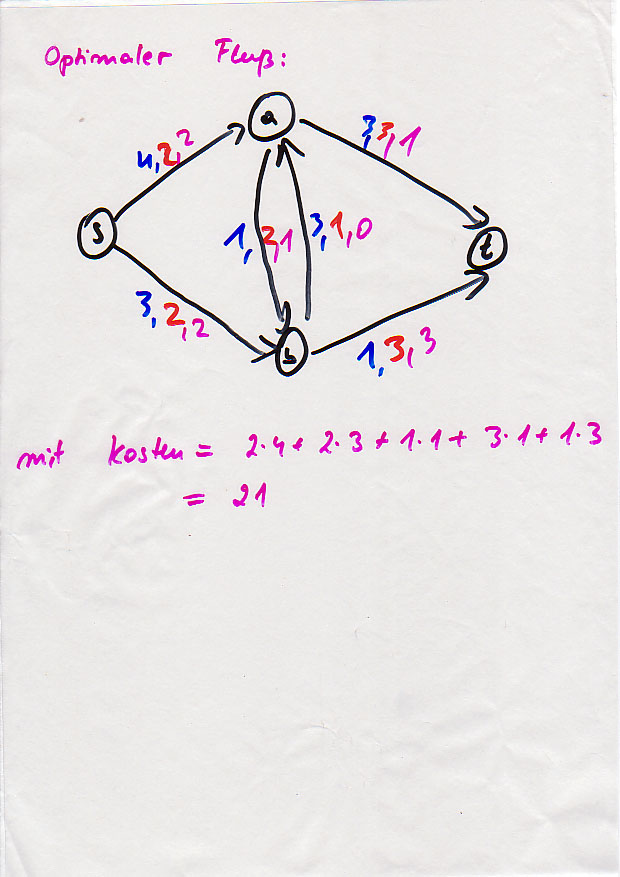 Optimaler Fluß:
a
4,2,2
3,3,1
s
1,2,1
3,1,0
t
3,2,2
b
1,3,3
mit Kosten = 2·4 + 2·3 + 1·1 + 3·1 + 1·3
= 21